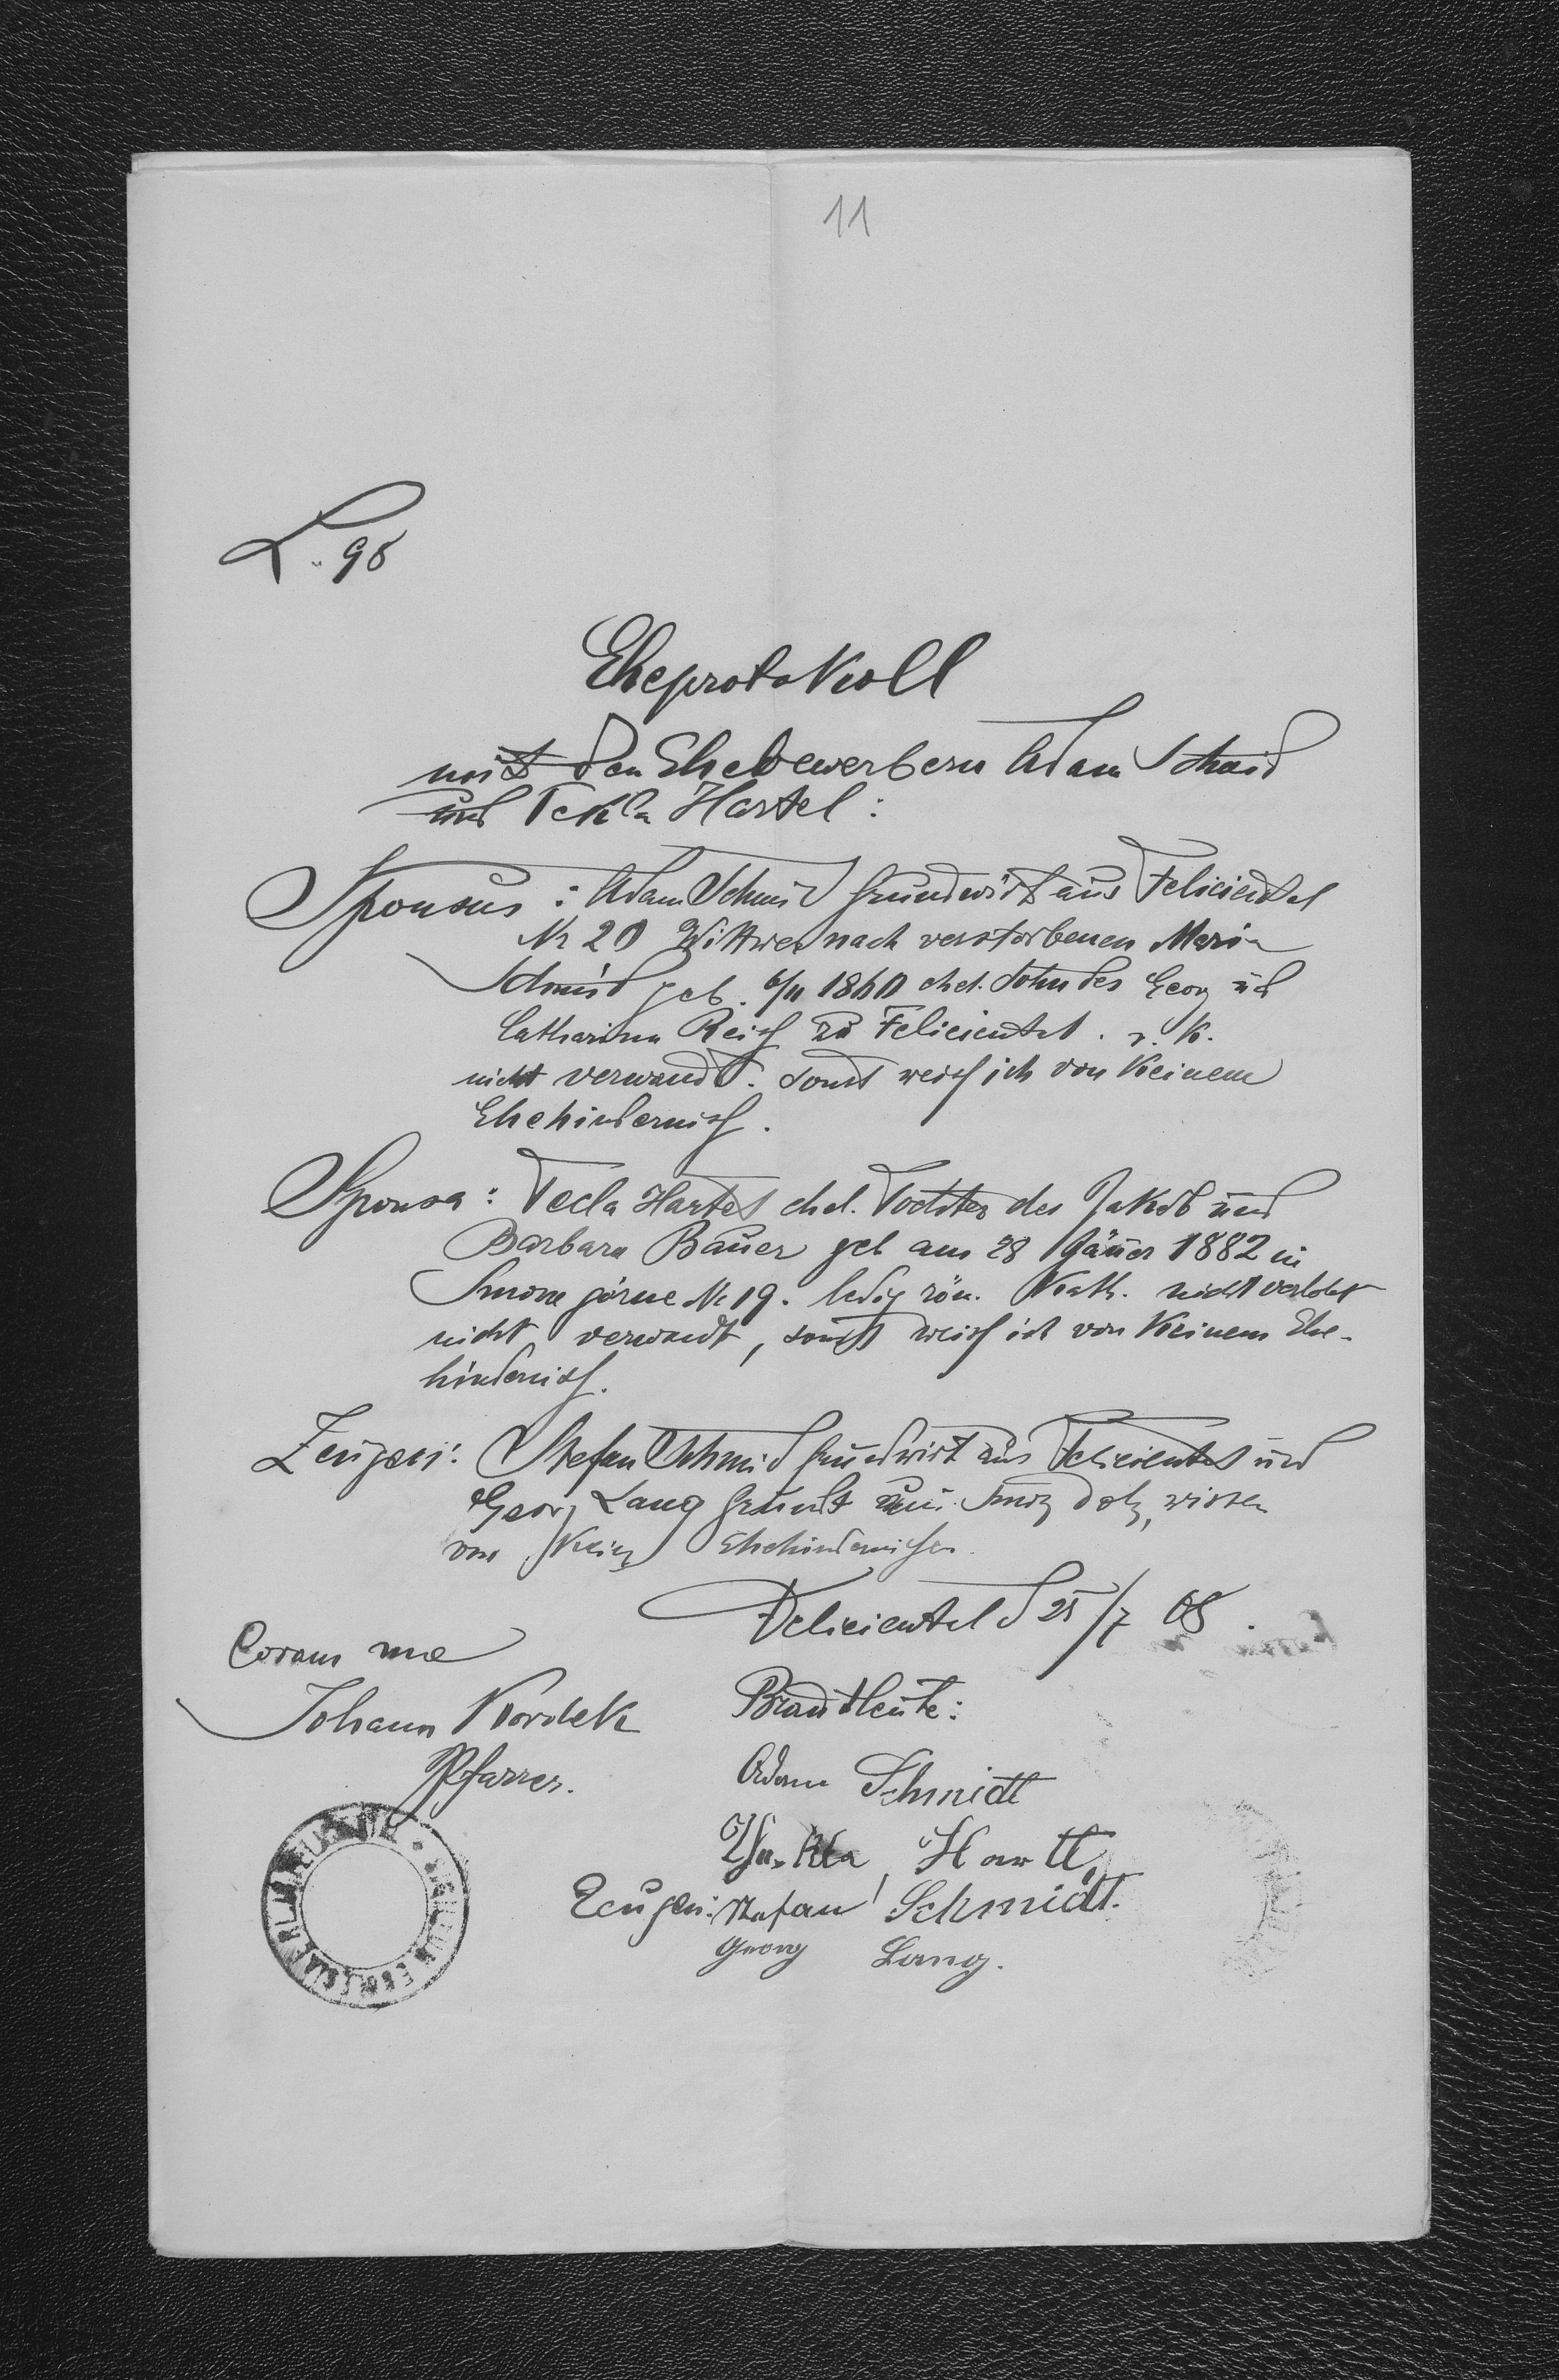 11
L. 98
Eheprotokoll
mit den Ehebewerbern Adam Schmid
und Tekla Hartel:
Sponsus: Adam Schmid Grundwirt aus Felicienthal
Nr 20 Wittwer nach verstorbenen Maria
Schmid geb. 6/11 1860 ehel. Sohn des Georg und
Catharina Reisz zu Felicienthal. r. K.
nicht verwandt. Sonst weisz ich von Keinem
Ehehindernisz.
Sponsa: Tecla Hartel ehel. Tochter des Jakob und
Barbara Bauer geb am 28 Jänner 1882 in
Smorze górne Nr 19. ledig röm. Kath. nicht verlobt
nicht verwandt, sonst weisz ich von Keinem Ehe-
hindernisz.
Zeugen: Stefan Schmid Grundwirt aus Felicienthal und
Georg Lang Grundt aus Smorz dolz, wissen
von Kein Ehehindernissen.
Felicienthal d 25/7 08.
Coram me
Johann Kordek
Pfarrer.
Brautleute:
Adam Schmidt
Thekla Hartl
Zeugen: Stefan Schmidt.
Georg Lang.